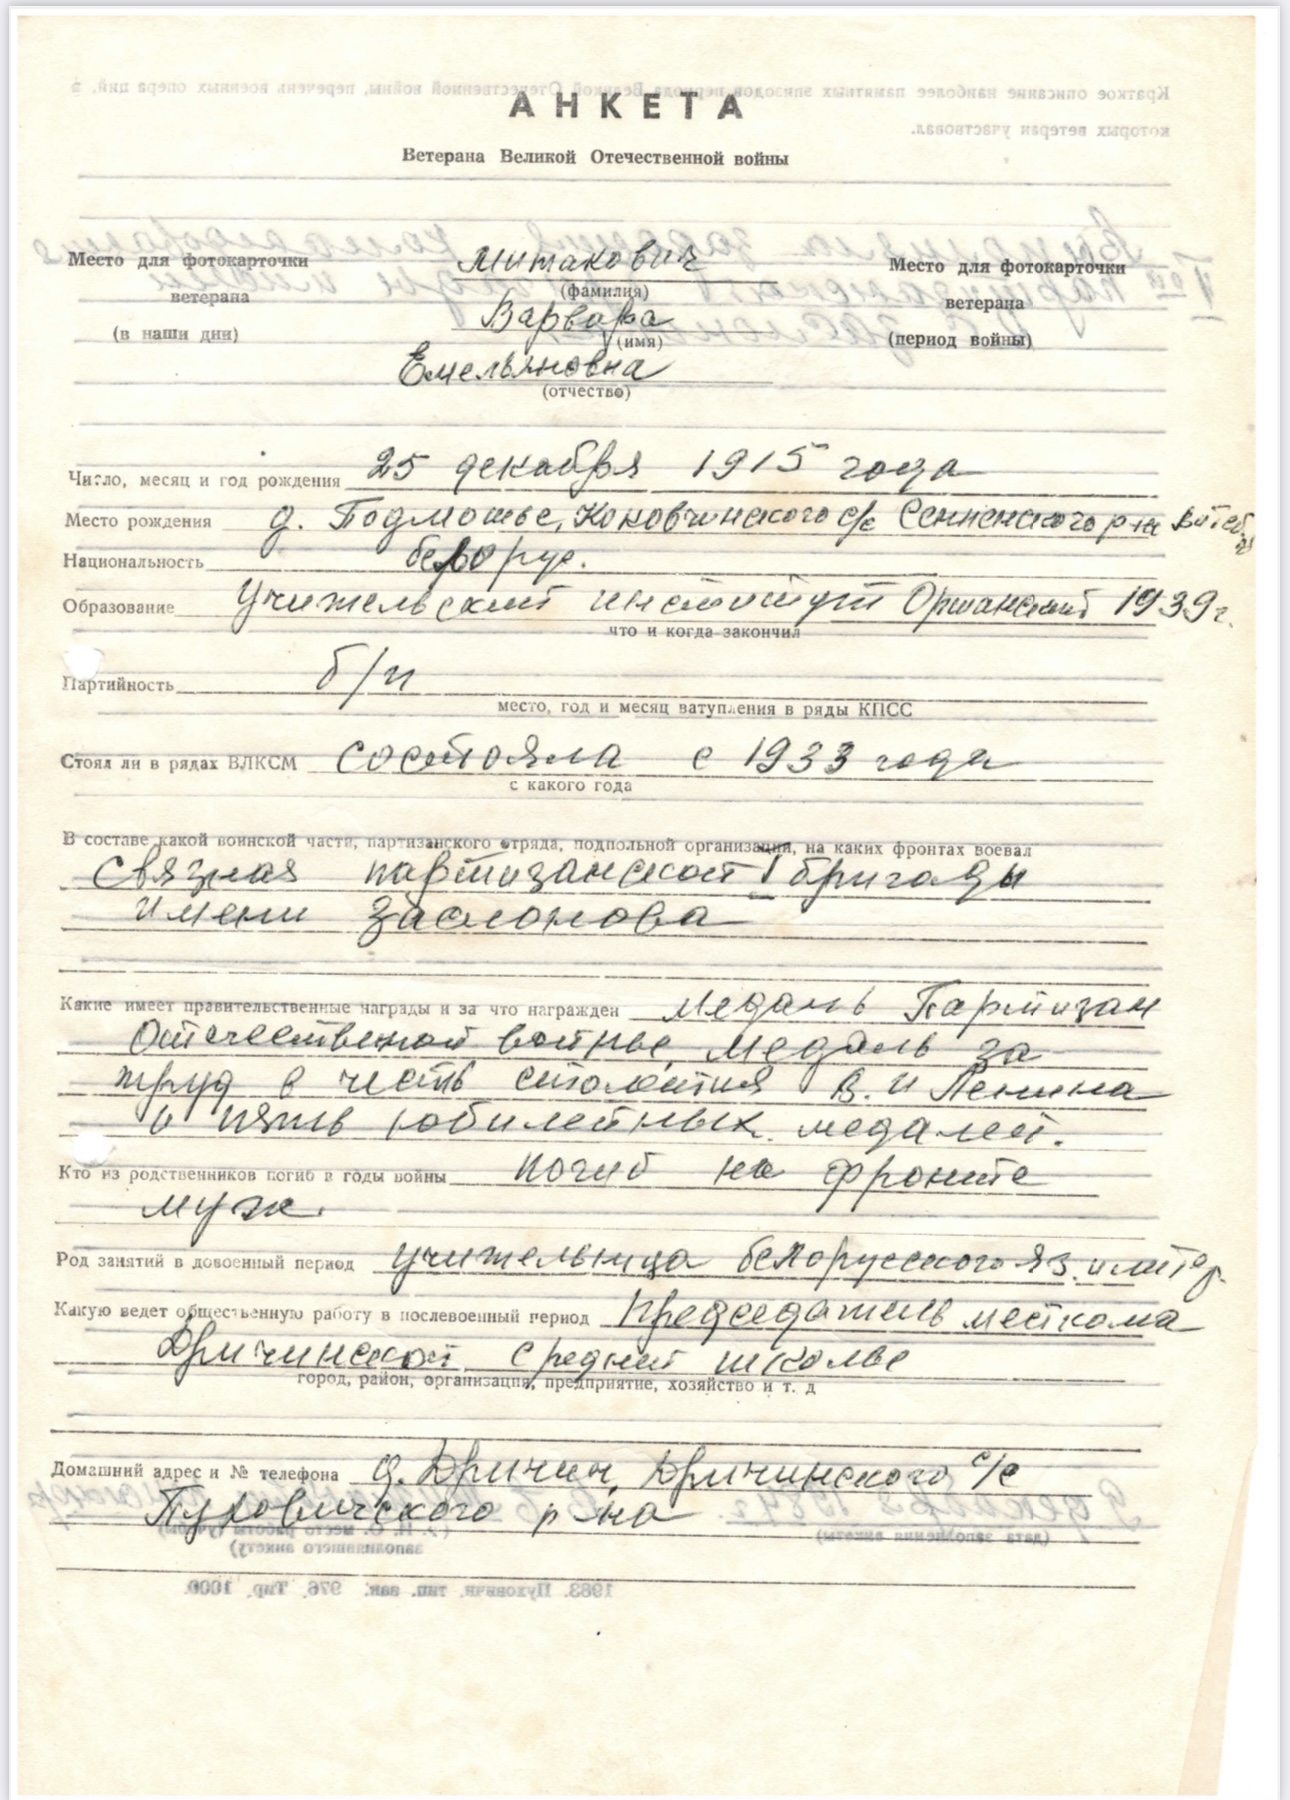 АНКЕТА
Ветерана Великой Отечественной войны
Место для фотокарточки
ветерана
(в наши дни)
Митакович
(фамилия)
Варвара
(имя)
Емельяновна
(отчество)
Место для фотокарточки
ветерана
(период войны)
Число, месяц и год рождения 25 декабря 1915 года
Место рождения д. Подмошье, Коковчинского с/с Сенненского р-на Витеб.
Национальность белорус.
Образование Учительский институт Оршанский 1939 г.
что и когда закончил
Партийность б/п
место, год и месяц ватупления в ряды КПСС
Стоял ли в рядах ВЛКСМ состояла с 1933 года
с какого года
В составе какой воинской части, партизанского отряда, подпольной организации, на каких фронтах воевал
связная партизанской I бригады
имени Заслонова
Какие имеет правительственные награды и за что награжден медаль Партизан
Отечественной войны, медаль за
труд в честь столетия В. И Ленина
и пять юбилейных медалей.
Кто из родственников погиб в годы войны погиб на фронте
муж.
Род занятий в довоенный период учительница белорусского яз. и литер.
Какую ведет общественную работу в послевоенный период Председатель месткома
Дричинской средней школы
город, район, организация, предприятие, хозяйство и т. д
Домашний адрес и № телефона д. Дричин, Дричинского с/с
Пуховичского р-на